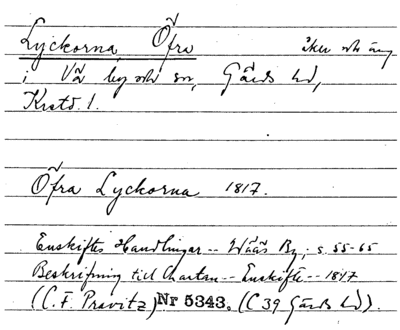 Lyckorna, Öfra åker och äng
i Vä by och sn, Gärds hd,
Krstd. l.
Öfra Lyckorna 1817.
Enskiftes Handlingar -- Wääs By, s. 55-65
Beskrifning till Chartan -- Enskifte -- 1817
(C. F. Pravitz) Nr 5343. (C 39 Gärds hd).